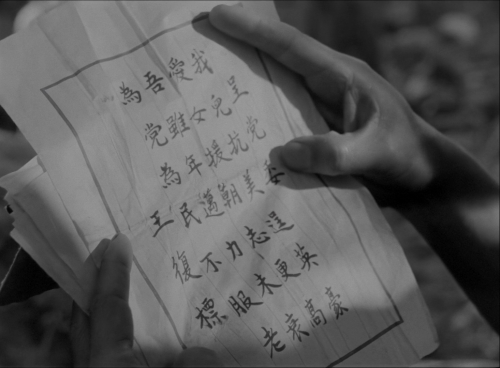 呈党委
我兒抗美逞英豪
愛女援朝志更高
吾雖年邁力未衰
為党為民不服老
王復標